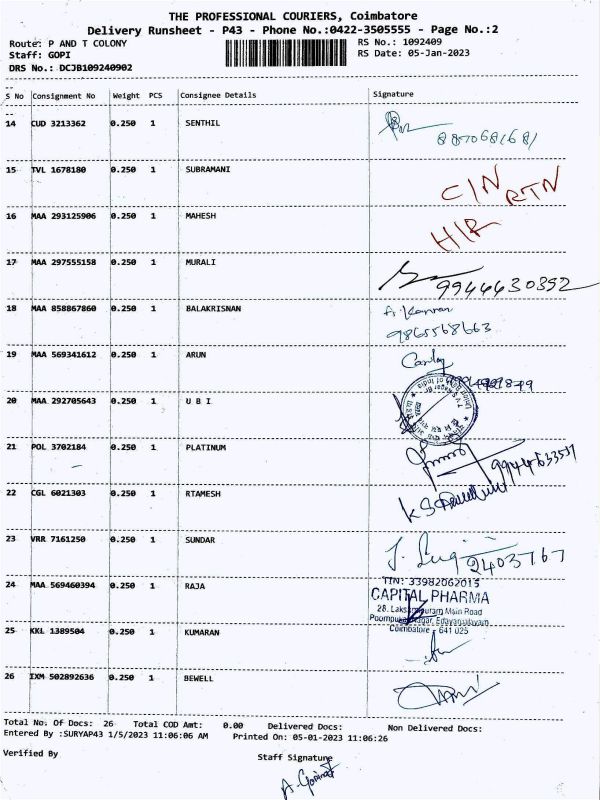 THE PROFESSIONAL COURIERS, Coimbatore
Delivery Runsheet - P43 - Phone No.:0422-3505555 - Page No.:2
Route: P AND T COLONY RS No.: 1092409
Staff: GOPI RS Date: 05-Jan-2023
DRS No.: DCJB109240902
S No Consignment No Weight PCS Consignee Details Signature
14 CUD 3213362 0.250 1 SENTHIL
8870681681
15 TVL 1678180 0.250 1 SUBRAMANI
C/N RTN
16 MAA 293125906 0.250 1 MAHESH
H/R
17 MAA 297555158 0.250 1 MURALI
9944630352
18 MAA 858867860 0.250 1 BALAKRISNAN
A. Kannan
9865568663
19 MAA 569341612 0.250 1 ARUN
20 MAA 292705643 0.250 1 U B I
21 POL 3702184 0.250 1 PLATINUM
22 CGL 6021303 0.250 1 RTAMESH
23 VRR 7161250 0.250 1 SUNDAR
2403767
24 MAA 569460394 0.250 1 RAJA
TIN: 33982062015
CAPITAL PHARMA
28, Main Road
Coimbatore - 641 025
25 KKL 1389504 0.250 1 KUMARAN
26 IXM 502892636 0.250 1 BEWELL
Total No. Of Docs: 26 Total COD Amt: 0.00 Delivered Docs: Non Delivered Docs:
Entered By :SURYAP43 1/5/2023 11:06:06 AM Printed On: 05-01-2023 11:06:26
Verified By Staff Signature